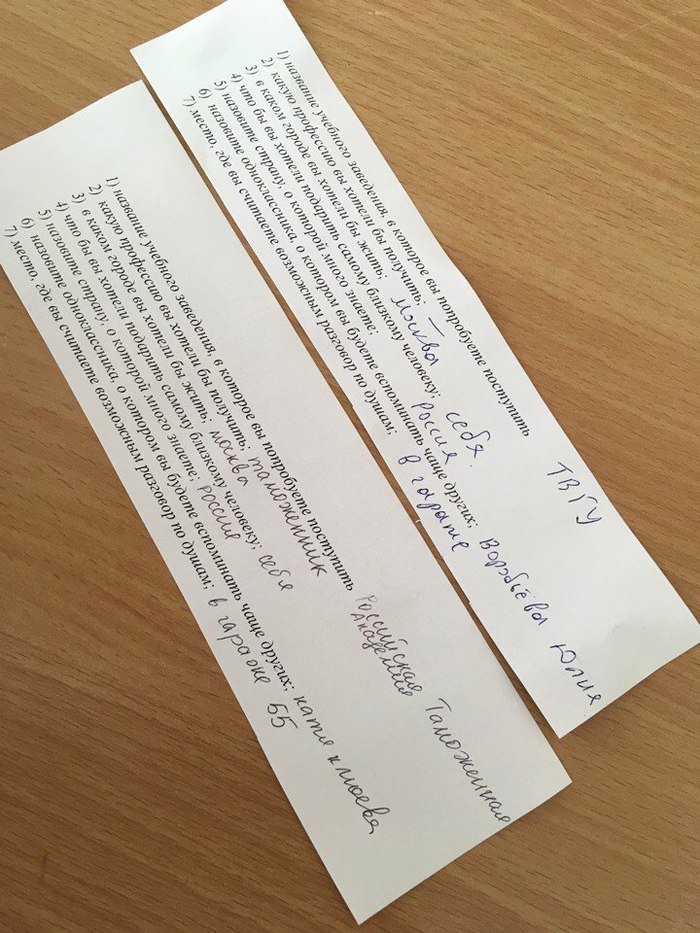 1) название учебного заведения, в которое вы попробуете поступить Российская Таможенная
Академия
2) какую профессию вы хотели бы получить; таможенник
3) в каком городе вы хотели бы жить; москва
4) что бы вы хотели подарить самому близкому человеку; себя
5) назовите страну, о которой много знаете; россия
6) назовите одноклассника, о котором вы будете вспоминать чаще других; катя клюева
7) место, где вы считаете возможным разговор по душам; в гараже 55
1) название учебного заведения, в которое вы попробуете поступить ТВГУ
2) какую профессию вы хотели бы получить; —
3) в каком городе вы хотели бы жить; Москва
4) что бы вы хотели подарить самому близкому человеку; себя.
5) назовите страну, о которой много знаете; Россия
6) назовите одноклассника, о котором вы будете вспоминать чаще других; Воробьёва Юлия
7) место, где вы считаете возможным разговор по душам; в гараже